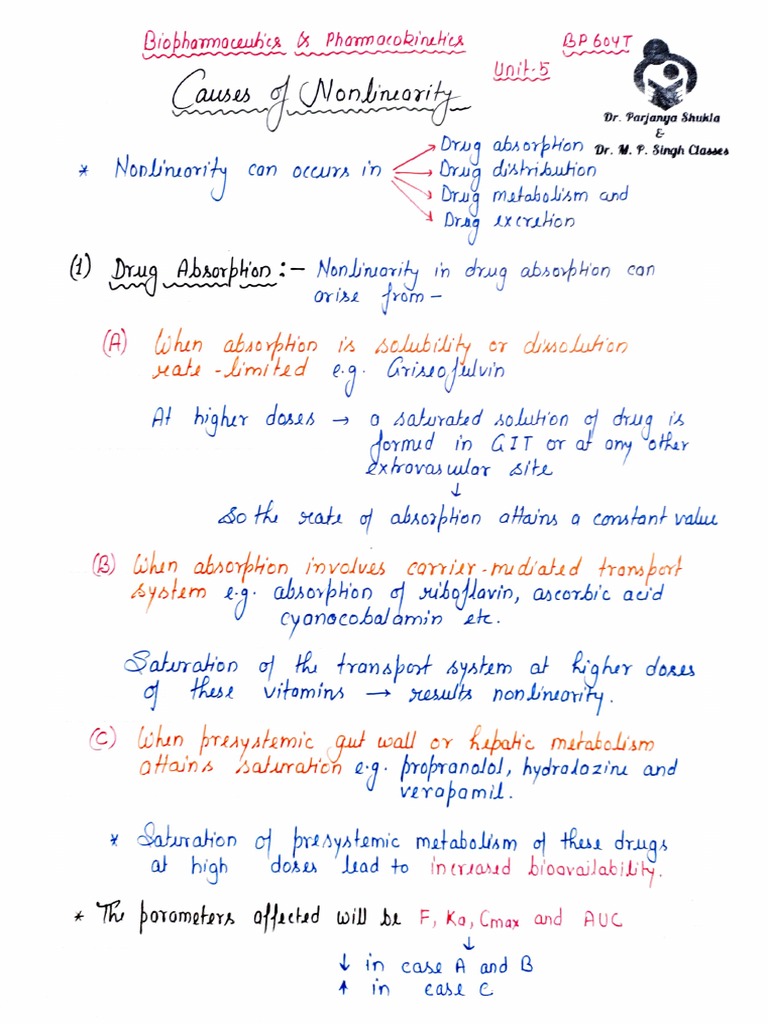 Biopharmaceutics & Pharmacokinetics BP604T
Unit-5
Causes of Nonlinearity
Dr. Parjanya Shukla
&
Dr. M. P. Singh Classes
* Nonlinearity can occurs in
Drug absorption
Drug distribution
Drug metabolism and
Drug excretion
(1) Drug Absorption :- Nonlinearity in drug absorption can
arise from -
(A) When absorption is solubility or dissolution
rate-limited e.g. Griseofulvin
At higher doses → a saturated solution of drug is
formed in GIT or at any other
extravascular site
↓
So the rate of absorption attains a constant value
(B) When absorption involves carrier-mediated transport
system e.g. absorption of riboflavin, ascorbic acid
cyanocobalamin etc.
Saturation of the transport system at higher doses
of these vitamins → results nonlinearity.
(C) When presystemic gut wall or hepatic metabolism
attains saturation e.g. propranolol, hydralazine and
verapamil.
* Saturation of presystemic metabolism of these drugs
at high doses lead to increased bioavailability.
* The parameters affected will be F, Ka, Cmax and AUC
↓
↓ in case A and B
↑ in case C